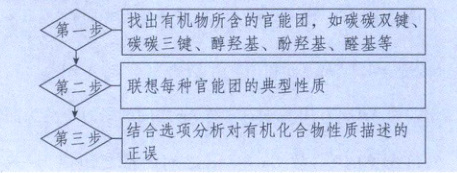 第一步
找出有机物所含的官能团，如碳碳双键、
碳碳三键、醇羟基、酚羟基、醛基等
第二步
联想每种官能团的典型性质
第三步
结合选项分析对有机化合物性质描述的
正误